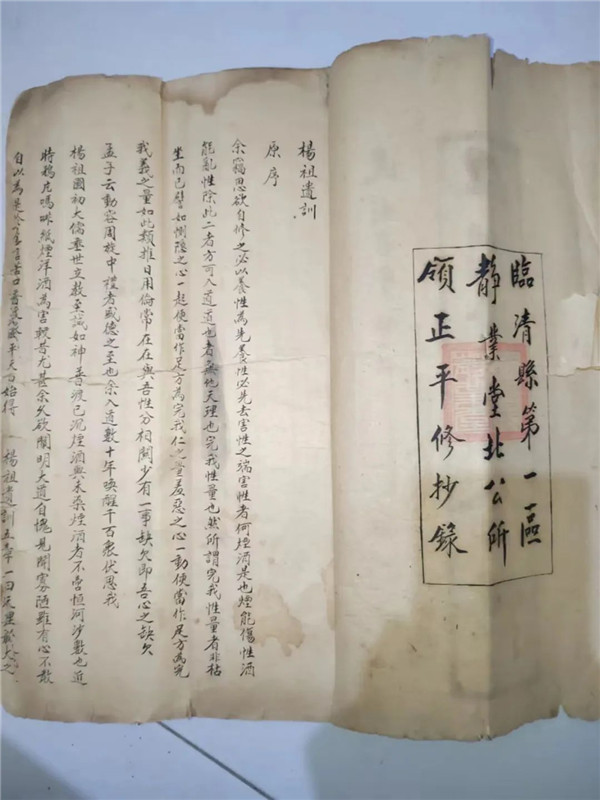 臨清縣第一區
靜業堂北公所
領正平修抄錄
楊祖遺訓
原序
余竊思欲自修之必以養性為先養性必先去害性之端害性者何煙酒是也煙能傷性酒
能亂性除此二者方可入道道也者無他天理也完我性量也然所謂完我性量者非枯
坐而已譬如惻隱之心一起便當作足方為完我仁之量羞惡之心一動便當作足方為完
我義之量如此類推日用倫常在在與吾性分相關少有一事缺欠即吾心之缺欠
孟子云動容周旋中禮者盛德之至也余入道數十年喚醒千百衆伏思我
楊祖國初大儒垂世立教至誠如神普渡已沉煙酒與未染煙酒者不啻恒河沙數也近
時鴉片嗎啡紙煙洋酒為害較昔尤甚余久欲闡明大道自愧見聞寡陋雖有心不敢
自以為是 苦口 平天 始得 楊祖遺訓五章一曰天理